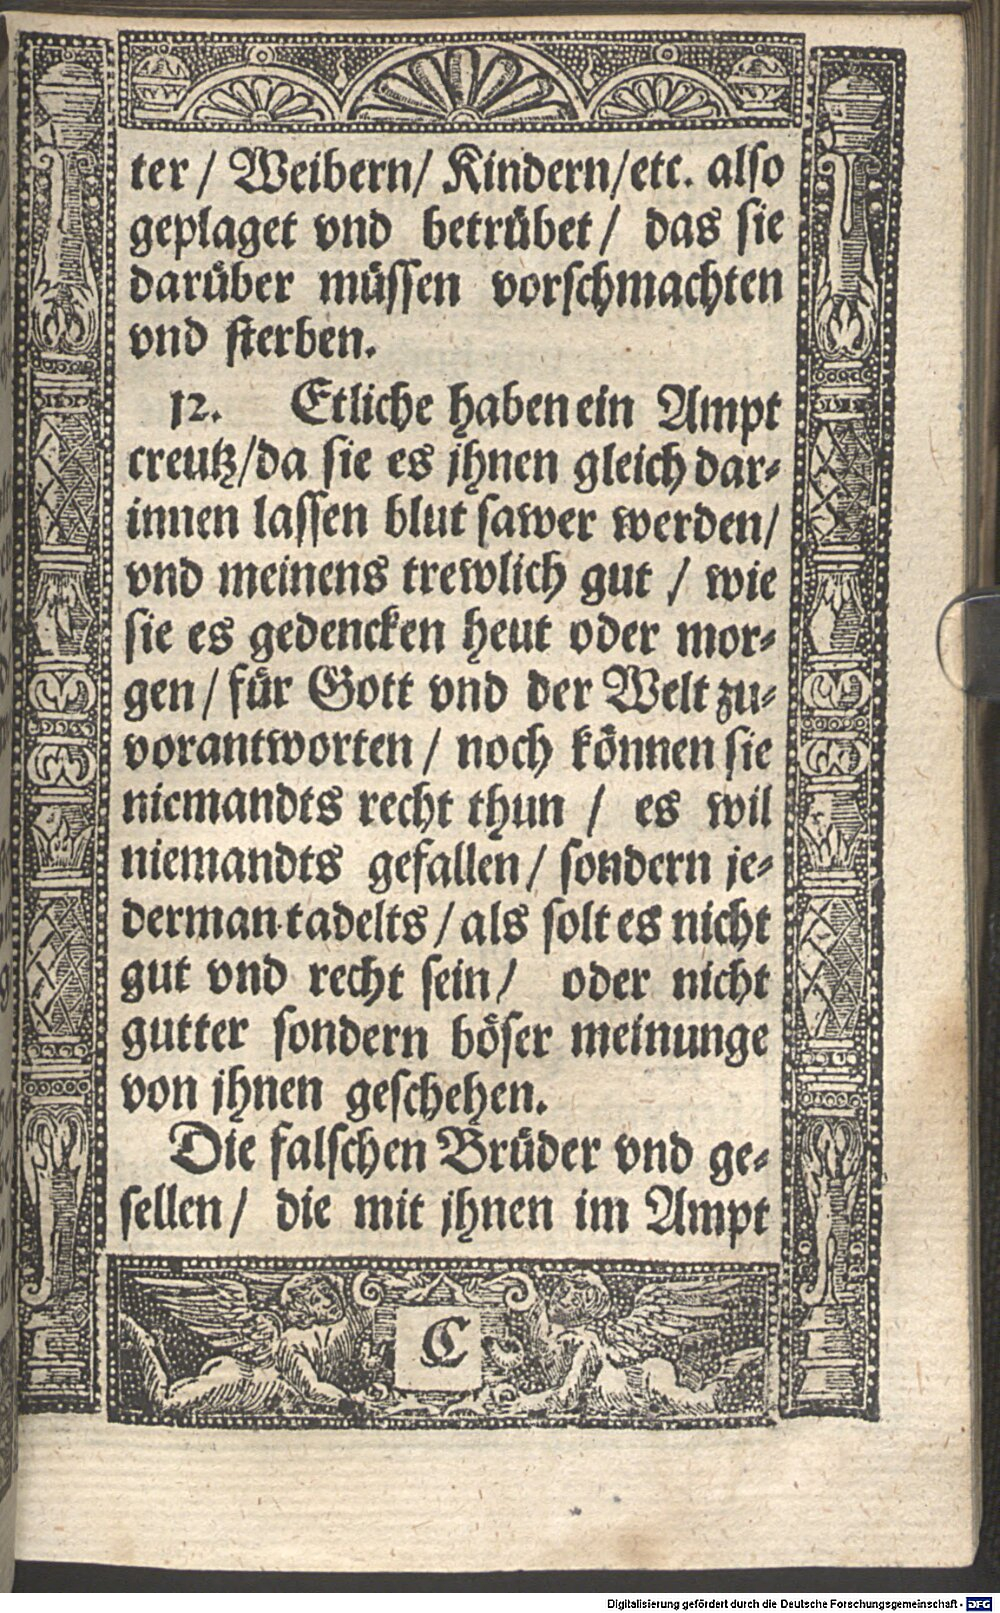 ter / Weibern / Kindern / etc. also
geplaget vnd betrübet / das sie
darüber müssen vorschmachten
vnd sterben.
12. Etliche haben ein Ampt
creutz / da sie es jhnen gleich dar-
innen lassen blut sawer werden /
vnd meinens trewlich gut / wie
sie es gedencken heut oder mor-
gen / für Gott vnd der Welt zu-
vorantworten / noch können sie
niemandts recht thun / es wil
niemandts gefallen / sondern je-
derman tadelts / als solt es nicht
gut vnd recht sein / oder nicht
gutter sondern böser meinunge
von jhnen geschehen.
Die falschen Brüder vnd ge-
sellen / die mit jhnen im Ampt
C
Digitalisierung gefördert durch die Deutsche Forschungsgemeinschaft - DFG